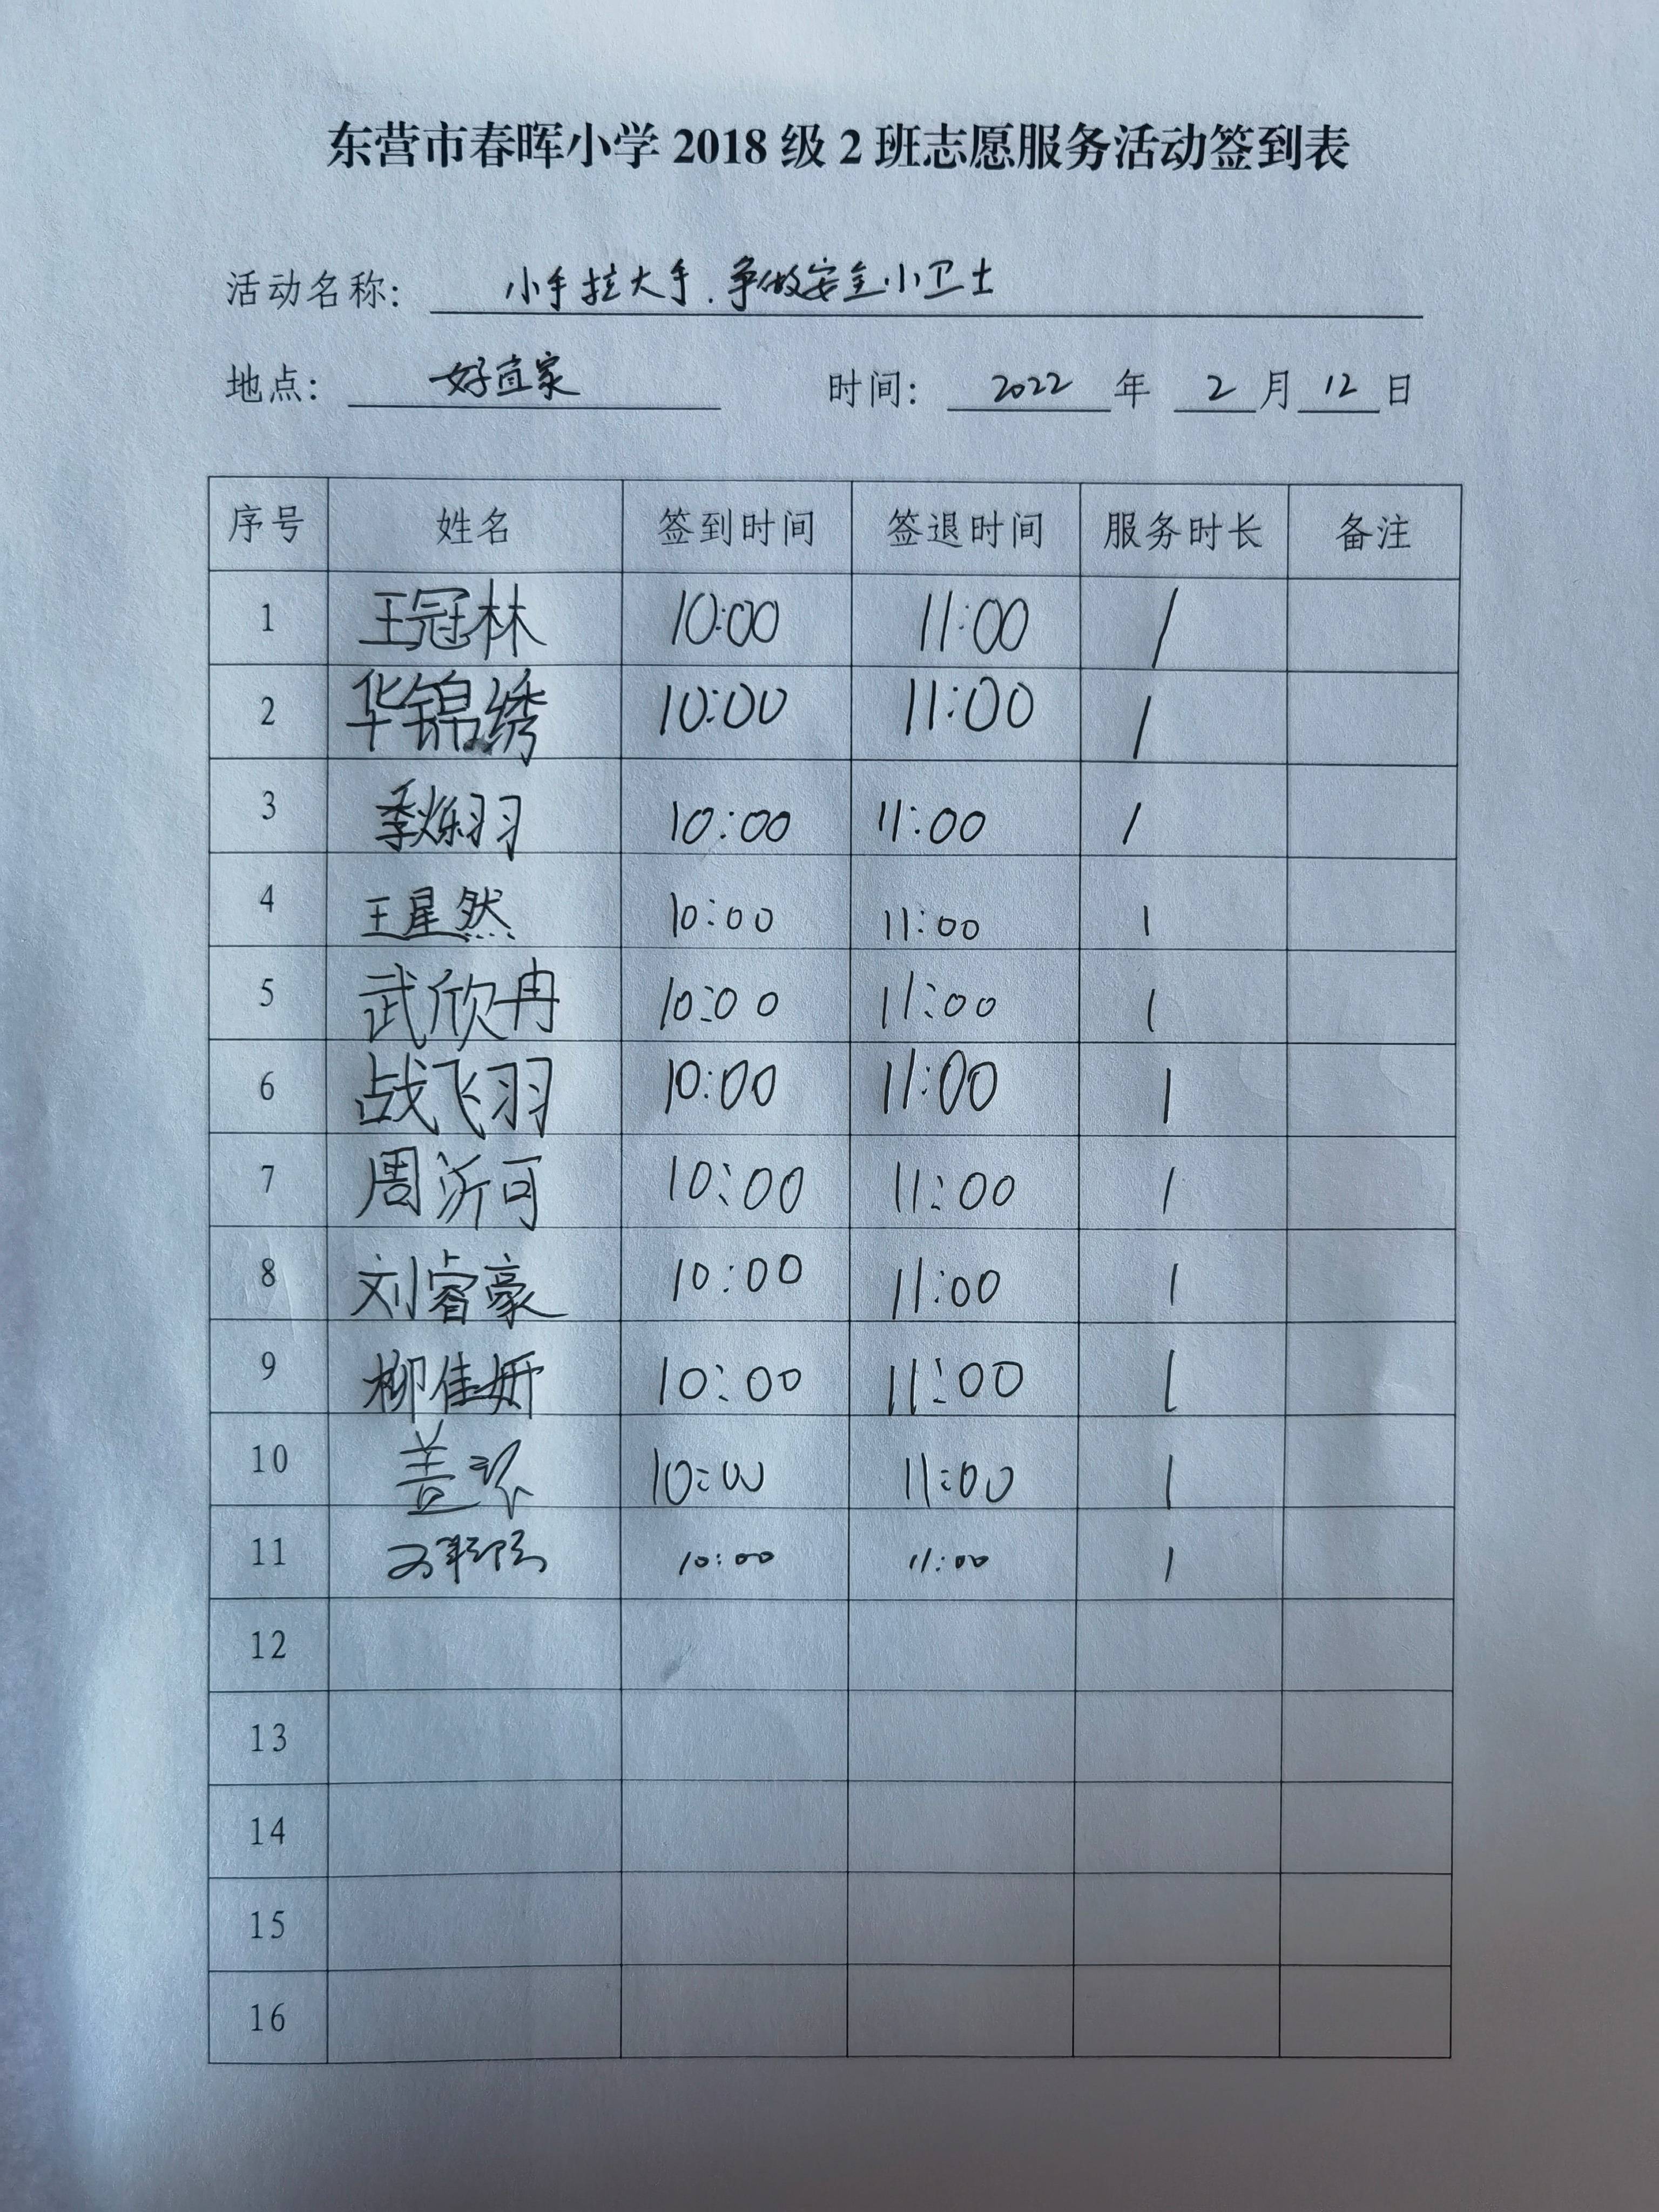 东营市春晖小学 2018 级 2 班志愿服务活动签到表
活动名称: 小手拉大手.争做安全小卫士
地点: 好宜家 时间: 2022 年 2 月 12 日
序号 姓名 签到时间 签退时间 服务时长 备注
1 王冠林 10:00 11:00 1
2 华锦绣 10:00 11:00 1
3 季烁羽 10:00 11:00 1
4 王星然 10:00 11:00 1
5 武欣冉 10:00 11:00 1
6 战飞羽 10:00 11:00 1
7 周沂可 10:00 11:00 1
8 刘睿豪 10:00 11:00 1
9 柳佳妍 10:00 11:00 1
10 盖 10:00 11:00 1
11 10:00 11:00 1
12
13
14
15
16